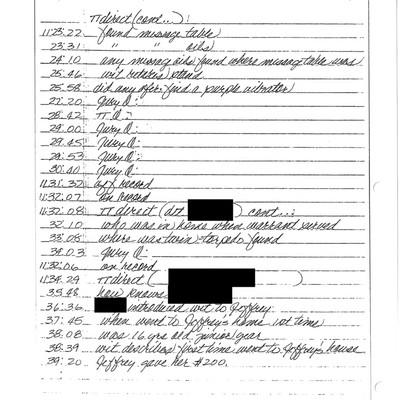 π direct (cont...):
11:23:22 found massage table
23:31 " " oils
24:10 any massage oils found where massage table was
25:46 wit retakes stand
25:58 did any ofcr. find a purple vibrator
27:20 Jury Q:
28:42 π Q:
29:00 Jury Q:
29:45 Jury Q:
29:53 Jury Q:
30:40 Jury Q:
11:31:32 off record
11:32:07 on record
11:32:08 π direct (det ) cont...:
32:10 who was in home when warrant served
33:08 where was twin torpedo found
34:03 Jury Q:
11:32:06 on record
11:34:29 π direct ( )
35:48 how knows
36:36 introduced wit to Jeffrey
37:45 when went to Jeffrey's home 1st time
38:08 was 16 yrs old junior year
38:39 wit describes first time went to Jeffrey's house
39:20 Jeffrey gave her $200.